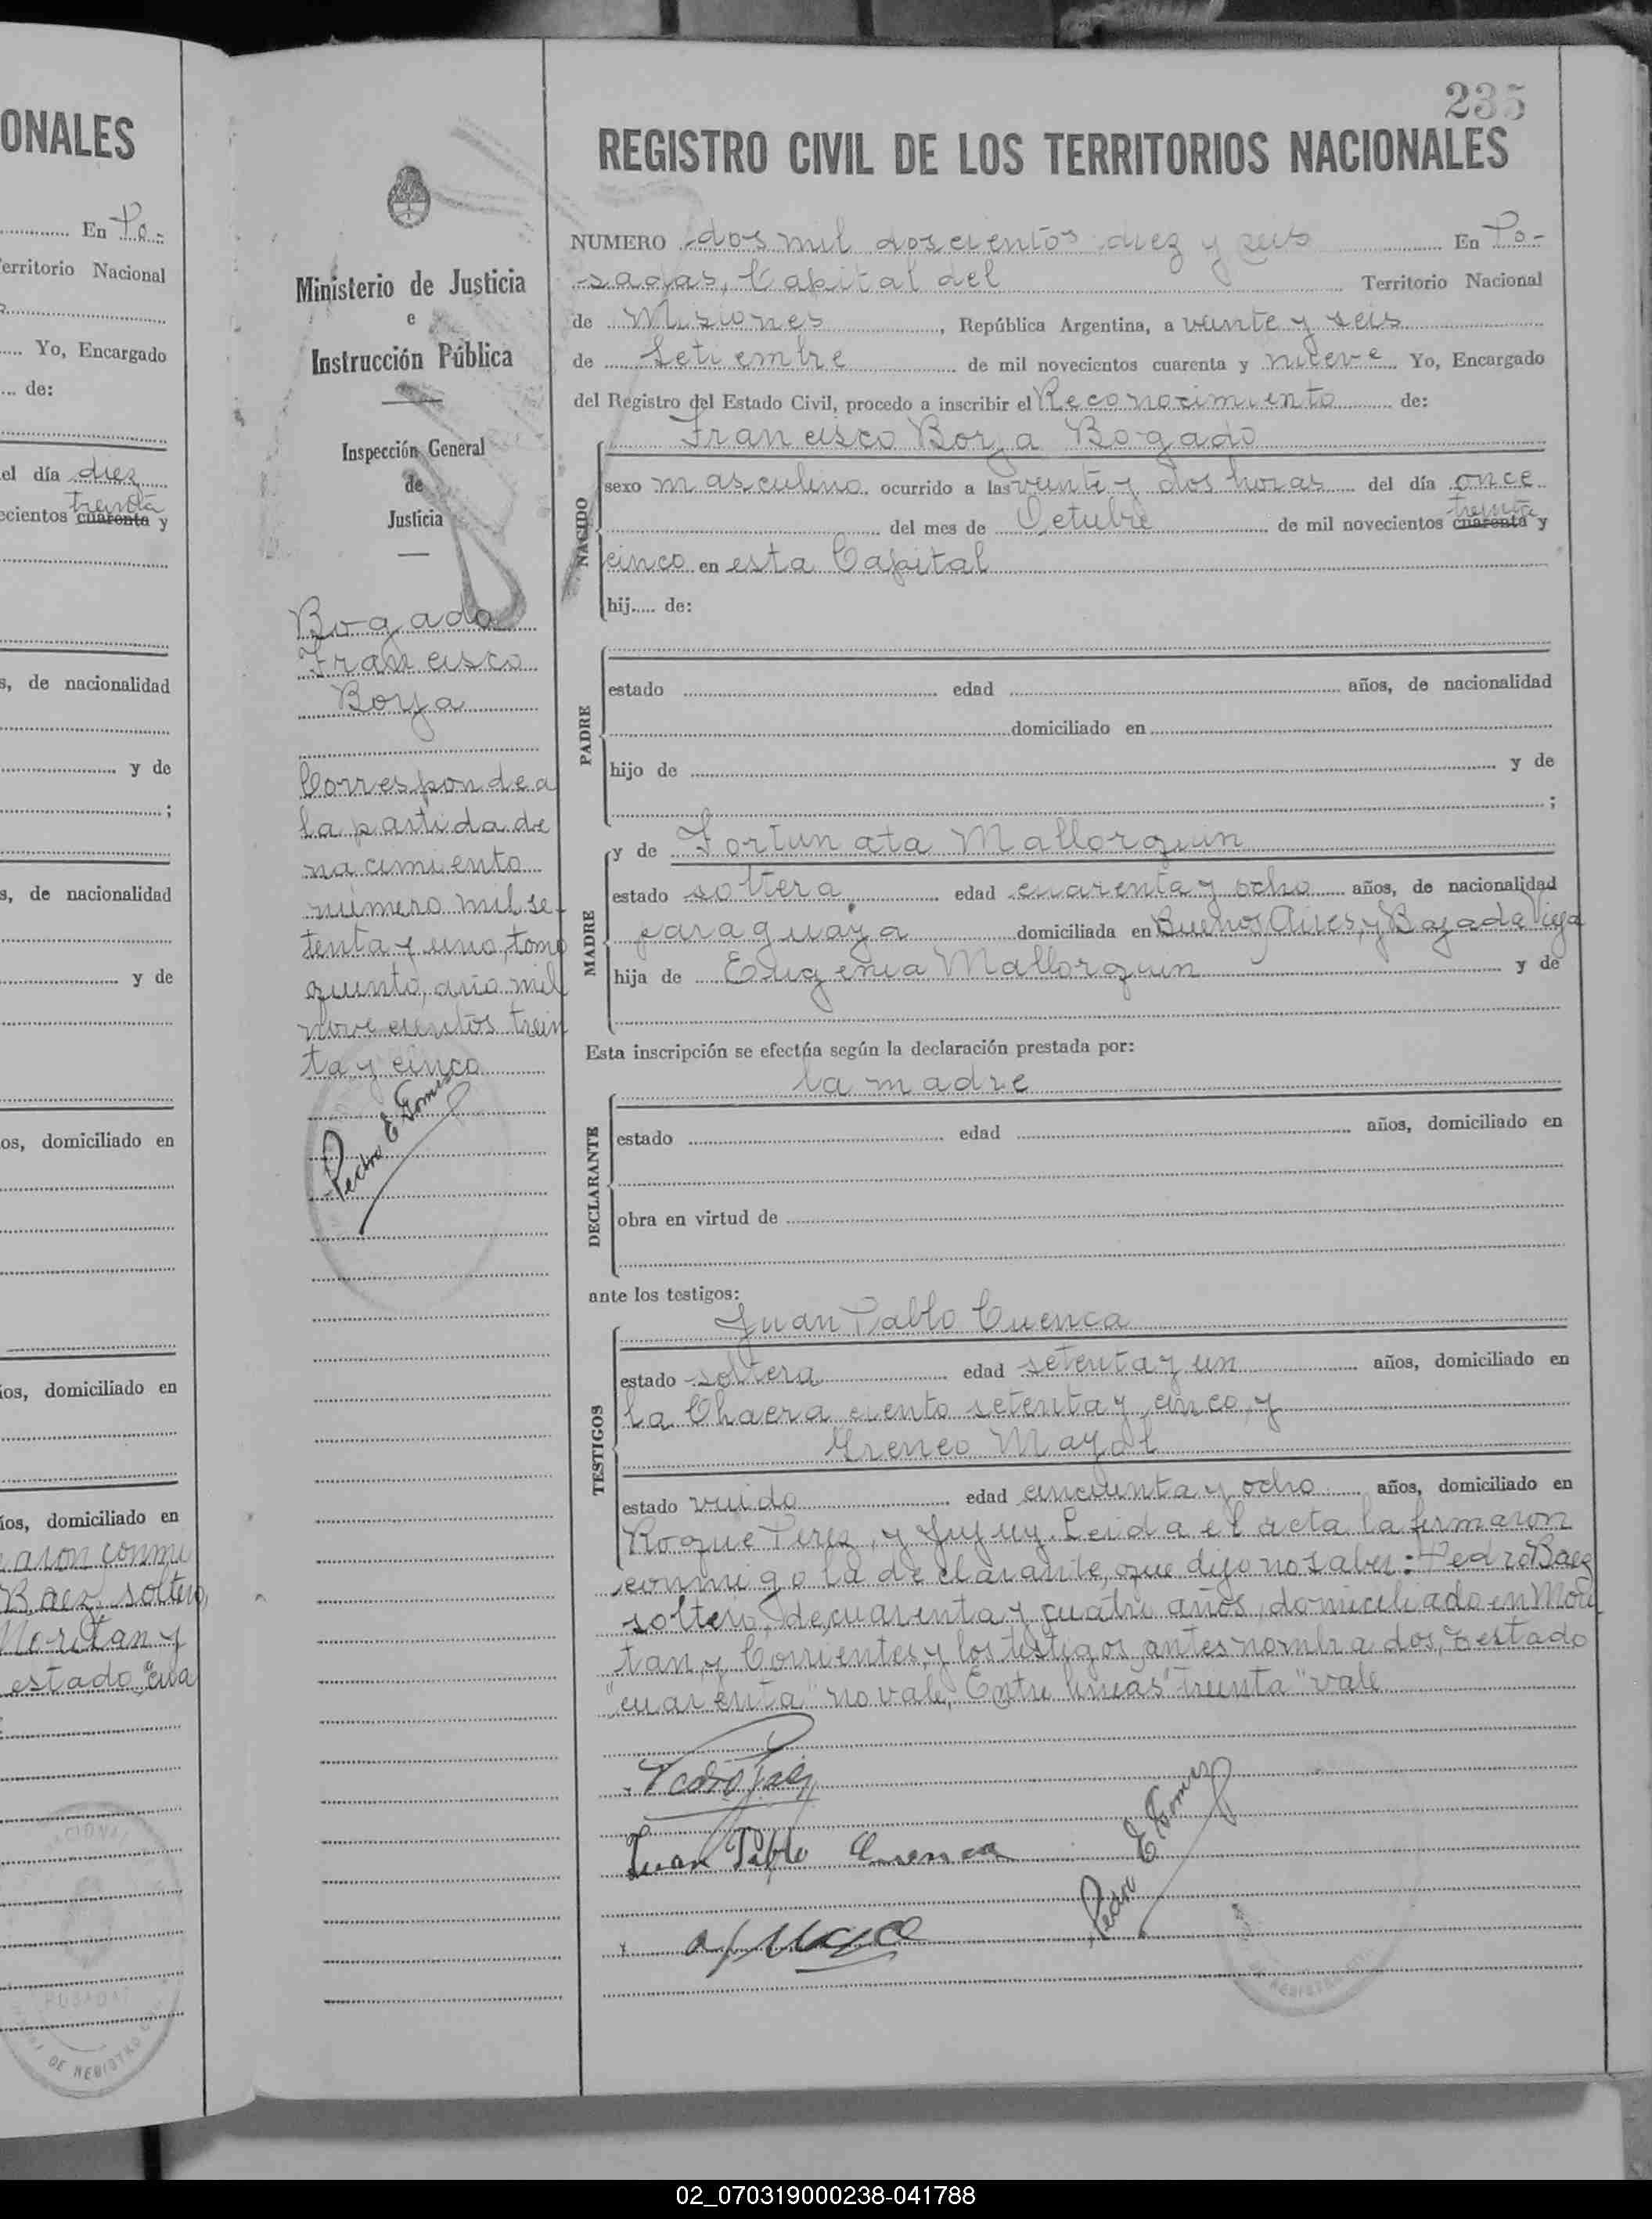 ONALES
En Po-
erritorio Nacional
Yo, Encargado
de:
el día diez
treinta
ecientos cuarenta y
s, de nacionalidad
y de
;
s, de nacionalidad
y de
os, domiciliado en
ios, domiciliado en
ios, domiciliado en
aron conmi
Baez, soltero,
Moritan y
estado "cua
Ministerio de Justicia
e
Instrucción Pública
Inspección General
de
Justicia
Bogado
Francisco
Borja
Corresponde a
la partida de
nacimiento
número mil se-
tenta y uno, tomo
quinto, año mil
novecientos trein
ta y cinco
Pedro E Gomez
235
REGISTRO CIVIL DE LOS TERRITORIOS NACIONALES
NUMERO dos mil doscientos diez y seis En Po-
sadas, Capital del Territorio Nacional
de Misiones, República Argentina, a veinte y seis
de Setiembre de mil novecientos cuarenta y nueve Yo, Encargado
del Registro del Estado Civil, procedo a inscribir el Reconocimiento de:
Francisco Borja Bogado
NACIDO
sexo masculino ocurrido a las veinte y dos horas del día once
treinta
del mes de Octubre de mil novecientos cuarenta y
cinco en esta Capital
hij..... de:
PADRE
estado edad años, de nacionalidad
domiciliado en
hijo de y de
;
MADRE
y de Fortunata Mallorquin
estado soltera edad cuarenta y ocho años, de nacionalidad
paraguaya domiciliada en Buenos Aires, y Bajada Vieja
hija de Eugenia Mallorquin y de
Esta inscripción se efectúa según la declaración prestada por:
la madre
DECLARANTE
estado edad años, domiciliado en
obra en virtud de
ante los testigos:
Juan Pablo Cuenca
TESTIGOS
estado soltero edad setenta y un años, domiciliado en
la Chacra ciento setenta y cinco, y
Ireneo Mayol
estado viudo edad cincuenta y ocho años, domiciliado en
Roque Perez, y Jujuy. Leida el acta la firmaron
conmigo la declarante, que dijo no saber: Pedro Baez
soltero, de cuarenta y cuatro años, domiciliado en Mori
tan, y Corrientes, y los testigos antes nombrados, Testado
"cuarenta" no vale, Entre lineas "treinta" vale
Pedro Baez
Juan Pablo Cuenca
Pedro E Gomez
POSADAS
DE REGISTRO
02_070319000238-041788